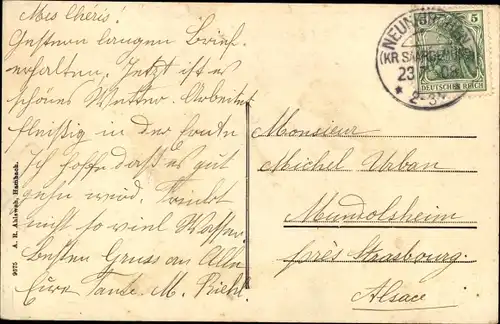 Mes Chéris!
Gestern langen Brief
erhalten. Jetzt ist es
schönes Wetter. Arbeitet
fleissig in der
Ich hoffe dass es gut
gehn wird. Trinkt
nicht so viel Wasser.
Besten Gruss an Alle
Eure Tante. M. Riehl
9675 A. R. Ahlsweh, Hambach.
NEUNKIRCHEN
(KR. SAARGEMÜND)
23
* 2-3
5
DEUTSCHES REICH
Monsieur
Michel Urban
Mundolsheim
près Strasbourg.
Alsace